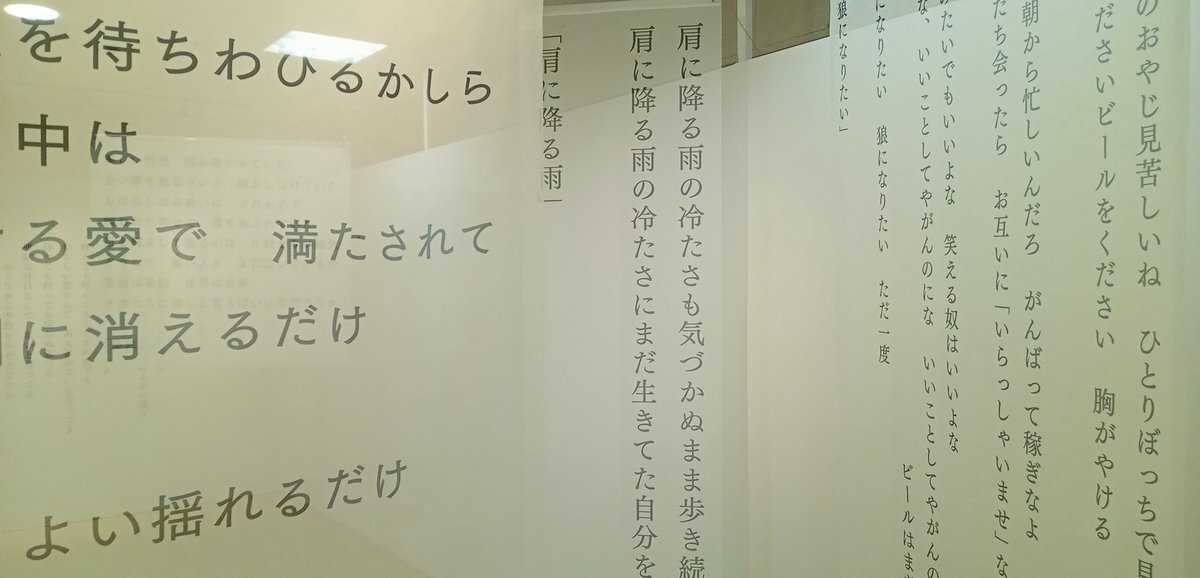 を待ちわびるかしら
中は
る愛で　満たされて
に消えるだけ
よい揺れるだけ
のおやじ見苦しいね　ひとりぼっちで見
ださいビールをください　胸がやける
朝から忙しいんだろ　がんばって稼ぎなよ
たち会ったら　お互いに「いらっしゃいませ」な
みたいでもいいよな　笑える奴はいいよな
な、いいことしてやがんのにな　いいことしてやがんの
ビールはま
になりたい　狼になりたい　ただ一度
狼になりたい」
肩に降る雨の冷たさも気づかぬまま歩き続
肩に降る雨の冷たさにまだ生きてた自分を
「肩に降る雨」